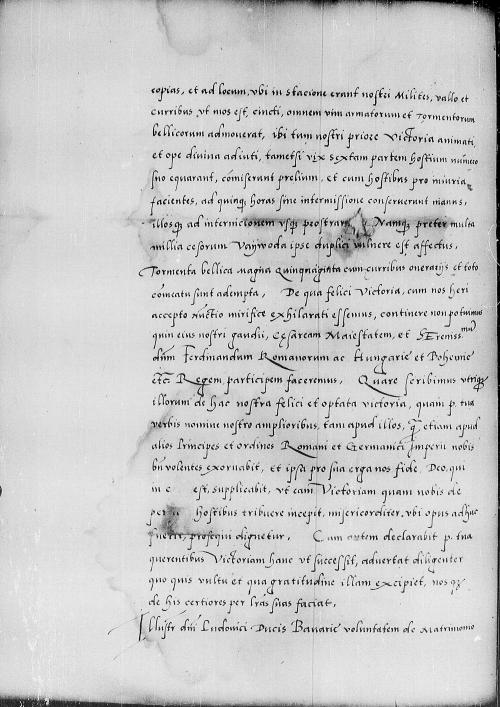 copias, et ad locum, vbi in stacione erant nostri Milites, vallo et
curribus, vt mos est, cincti, omnem vim armatorum et Tormentorum
bellicorum admouerat, ibi tum nostri priore Victoria animati,
et ope diuina adiuti, tametsi vix sextam partem hostium numero
suo equarant, comiserunt prelium, et cum hostibus pro iniuria
facientes, ad quinq; horas sine intermissione conseruerunt manus,
illosq; ad internicionem vsq; prostrarunt. Namq; preter multa
millia cesorum Vaywoda ipse duplici vulnere est affectus,
Tormenta bellica magna Quinquaginta cum curribus onerarijs et toto
comeatu sunt adempta, De qua felici Victoria, cum nos heri
accepto Nuctio mirifice exhilarati essemus, continere non potuimus
quin eius nostri gaudij, Cesaream Maiestatem, et Serenissimum
dnm Ferdinandum Romanorum ac Hungarie et Bohemie
etc Regem, participem faceremus, Quare scribimus vtriq;
illorum de hac nostra felici et optata victoria, quam p. tua
verbis nomine nostro amplioribus, tam apud illos, q etiam apud
alios Principes et ordines Romani et Germanici Imperij nobis
bn volentes exornabit, et ipsi pro sua erga nos fide Deo, qui
in est, supplicabit, vt eam Victoriam quam nobis de
hostibus tribuere incepit, misericorditer, vbi opus adhuc
fuerit, prosequi dignetur, Cum autem declarabit p. tua
querentibus Victoriam hanc vt successit, aduertat diligenter
quo quis vultu et qua gratitudine illam excipiet, nosq;
de his certiores per lras suas faciat,
Illustr dni Ludouici Ducis Bauarie voluntatem de Matrimonio